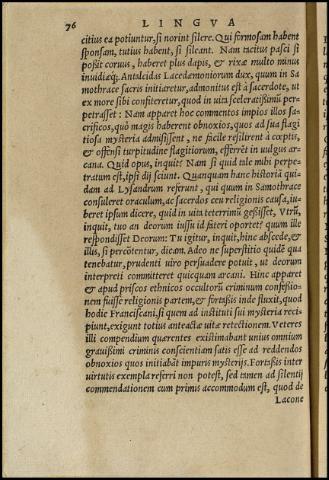 76 LINGVA
citius ea potiuntur, si norint silere. Qui formosam habent
sponsam, tutius habent, si sileant. Nam tacitus pasci si
posset coruus, haberet plus dapis, & rixæ multo minus
inuidiæq;. Antalcidas Lacedæmoniorum dux, quum in Sa
mothrace sacris initiaretur, admonitus est à sacerdote, ut
ex more sibi confiteretur, quod in uita sceleratissimũ per-
petrasset: Nam apparet hoc commentos impios illos sa-
crificos, quò magis haberent obnoxios, quos ad sua flagi
tiosa mysteria admisissent, ne facile resilirent à cœptis,
& offensi turpitudine flagitiorum, efferrẽt in uulgus ar-
cana. Quid opus, inquit? Nam si quid tale mihi perpe-
tratum est, ipsi dij sciunt. Quanquam hanc historiã qui-
dam ad Lysandrum referunt, qui quum in Samothrace
consuleret oraculum, ac sacerdos ceu religionis causa, iu-
beret ipsum dicere, quid in uita teterrimũ gessisset, Vtrũ,
inquit, tuo an deorum iussu id fateri oportet? quum ille
respondisset Deorum: Tu igitur, inquit, hinc abscede, &
illis, si percõtentur, dicam. Adeo ne superstitio quidẽ quæ
tenebatur, prudenti uiro persuadere potuit, ut deorum
interpreti committeret quicquam arcani. Hinc apparet
& apud priscos ethnicos occultorũ criminum confeßio-
nem fuisse religionis partem, & fortaßis inde fluxit, quod
hodie Franciscani, si quem ad instituti sui mysteria reci-
piunt, exigunt totius anteactæ uitæ retectionem. Veteres
illi compendium quærentes existimabant unius omnium
grauißimi criminis conscientiam satis esse ad reddendos
obnoxios quos initiabãt impuris mysterijs. Fortaßis inter
uirtutis exempla referri non potest, sed tamen ad silentij
commendationem cum primis accommodum est, quod de
Lacone